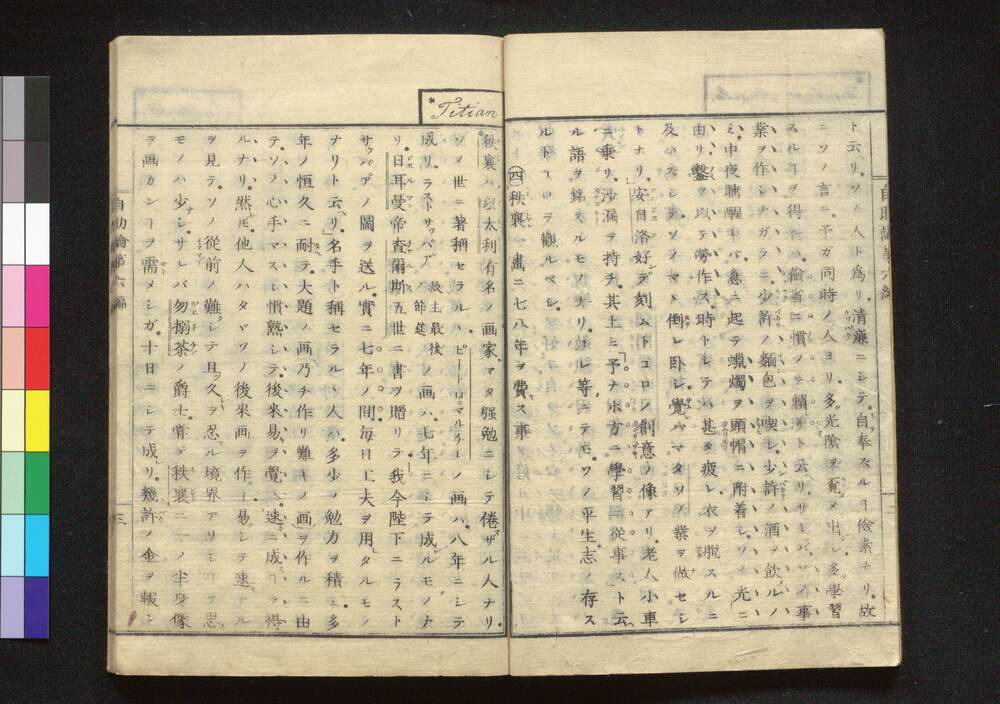 ト云リ。ソノ人ト爲リ清廉ニシテ自奉スルヿ儉素ナリ。故
ニソノ言ニ予ガ同時ノ人ヨリ多光陰ヲ覔メ出シ多學習
スルヿヲ得ルハ儉省ニ慣フニ賴リト云リサレバソノ事
業ヲ作シナガラニ少許ノ麵包ヲ喫シ少許ノ酒ヲ飲ルノ
ミ中夜睡醒レバ急ニ起テ蠟燭ヲ頭帽ニ附着シソノ光ニ
由リ鑿ヲ以テ勞作ス時トシテハ甚タ疲レ衣ヲ脫スルニ
及バズシテソノマヽ倒レ卧シ覺バマタソノ業ヲ做セシ
トナリ。安自洛好デ刻ムトコロノ創意ノ像アリ老人小車
ニ乗リ沙漏ヲ持チ其上ニ予ナホ方ニ學習ニ從事スト云
ル語ヲ銘スルモノナリコレ等ニテモソノ平生志ノ存ス
ルトコロヲ觀ルベシ。
四 秩襄一畫ニ七八年ヲ費ス事
Titian
秩襄ハ以太利有名ノ画家マタ强勉ニシテ倦ザル人ナリ
ソノ世ニ著稱セラルハピートロマルタイレノ画ハ八年ニシテ
成リラストサッパア 救主最後ノ節筵 ノ画ハ七年ニシテ成ルモノナ
リ日耳曼帝査爾斯五世ニ書ヲ贈リテ我今陛下ニラスト
サッパアノ圖ヲ送ル實ニ七年ノ間每日工夫ヲ用タルモノ
ナリト云リ名手ト稱セラルヽ人ハ多少ノ勉力ヲ積ミ多
年ノ恒久ニ耐テ大題ノ画乃チ作リ難キノ画ヲ作ルニ由
テソノ心手マスヽヽ慣熟シテ後來易ヲ覺ヘ速ニ成ヿヲ得
ルナリ然ルニ他人ハタヾソノ後來画ヲ作ルヿ易シテ速ナル
ヲ見テソノ從前ノ難シテ且久ヲ忍ル境界アリシヿヲ思
モノハ少シサレバ勿搦茶ノ爵士嘗テ秩襄ニソノ半身像
ヲ画カシヿヲ需メシガ十日ニシテ成リ幾許ノ金ヲ報シ
自助論第六編
三